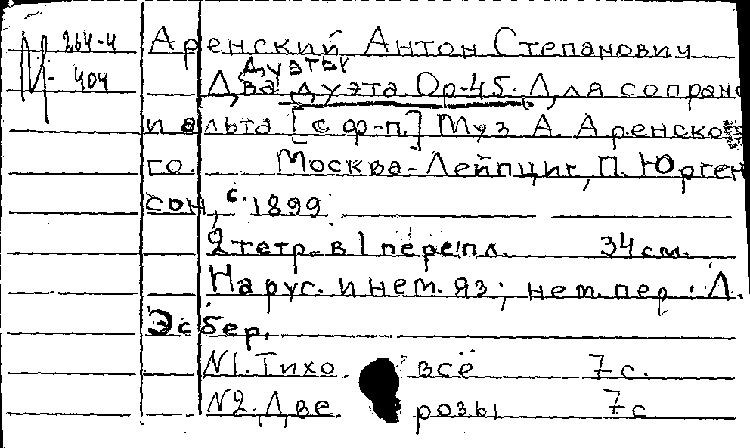 М 264-4
404
Аренский Антон Степанович
Дуэты
Два дуэта Op-45. Для сопрано
и альта [с ф-п.] Муз. А. Аренско-
го. Москва-Лейпциг, П. Юрген
сон, с. 1899
2 тетр. в 1 перепл. 34 см.
На рус. и нем. яз; нем. пер. Л.
Эсбер.
N1. Тихо всё 7 с.
N2. Две розы 7 с